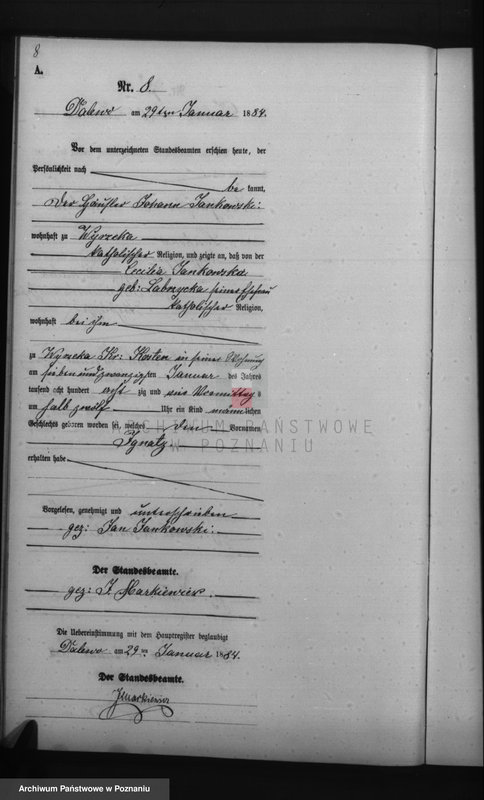 8
A.
Nr. 8.
Dalewo am 29ten Januar 1884.
Vor dem unterzeichneten Standesbeamten erschien heute, der
Persönlichkeit nach
be kannt,
der Häusler Johann Jankowski:
wohnhaft zu Wyrzeka
katholischer Religion, und zeigte an, daß von der
Cecilia Jankowska
geb: seiner Ehefrau
katholischer Religion,
wohnhaft bei ihm
zu Wyrzeka Kr: Kosten in seiner Wohnung
am sieben und zwanzigsten Januar des Jahres
tausend acht hundert acht zig und vier Vormittag s
um halb zwölf Uhr ein Kind männlichen
Geschlechts geboren worden sei, welches den Vornamen
Ignatz
erhalten habe
Vorgelesen, genehmigt und unterschrieben
gez: Jan Jankowski:
Der Standesbeamte.
gez: J. Markiewicz.
Die Uebereinstimmung mit dem Hauptregister beglaubigt
Dalewo am 29ten Januar 1884.
Der Standesbeamte.
JMarkiewicz
ARCHIWUM PAŃSTWOWE
W POZNANIU
Archiwum Państwowe w Poznaniu